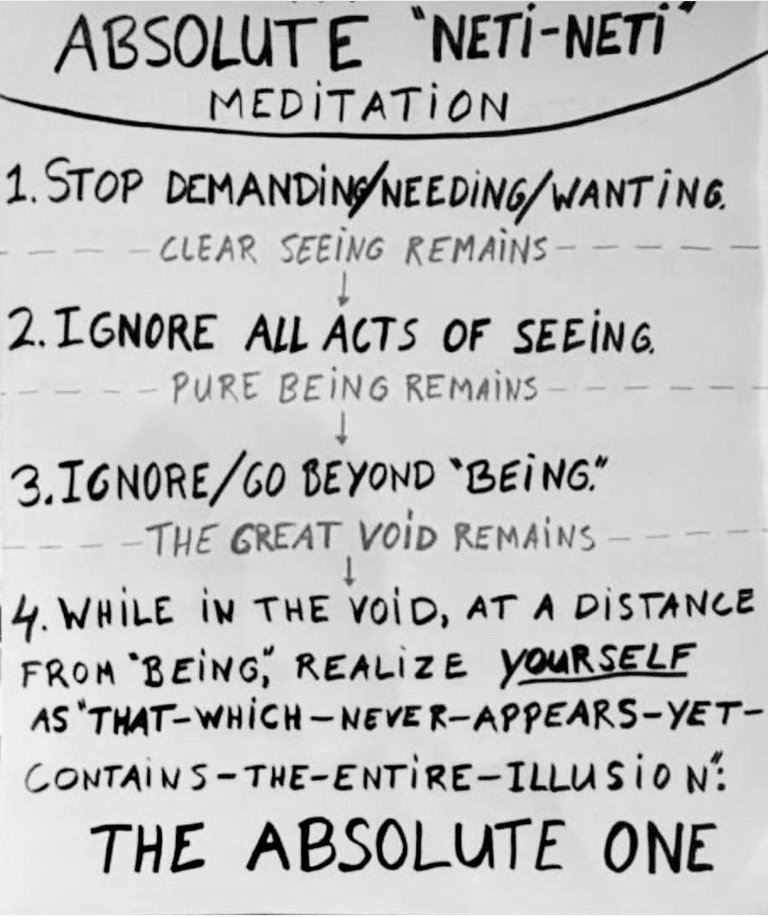 ABSOLUTE "NETi-NETi"
MEDiTATiON
1. STOP DEMANDiNG/NEEDiNG/WANTiNG.
CLEAR SEEiNG REMAiNS
2. IGNORE ALL ACTS OF SEEiNG.
PURE BEiNG REMAiNS
3. IGNORE/GO BEYOND "BEiNG."
THE GREAT VOiD REMAiNS
4. WHiLE iN THE VOiD, AT A DiSTANCE
FROM "BEiNG," REALiZE YOURSELF
AS "THAT-WHiCH-NEVER-APPEARS-YET-
CONTAiNS-THE-ENTiRE-ILLUSiON":
THE ABSOLUTE ONE